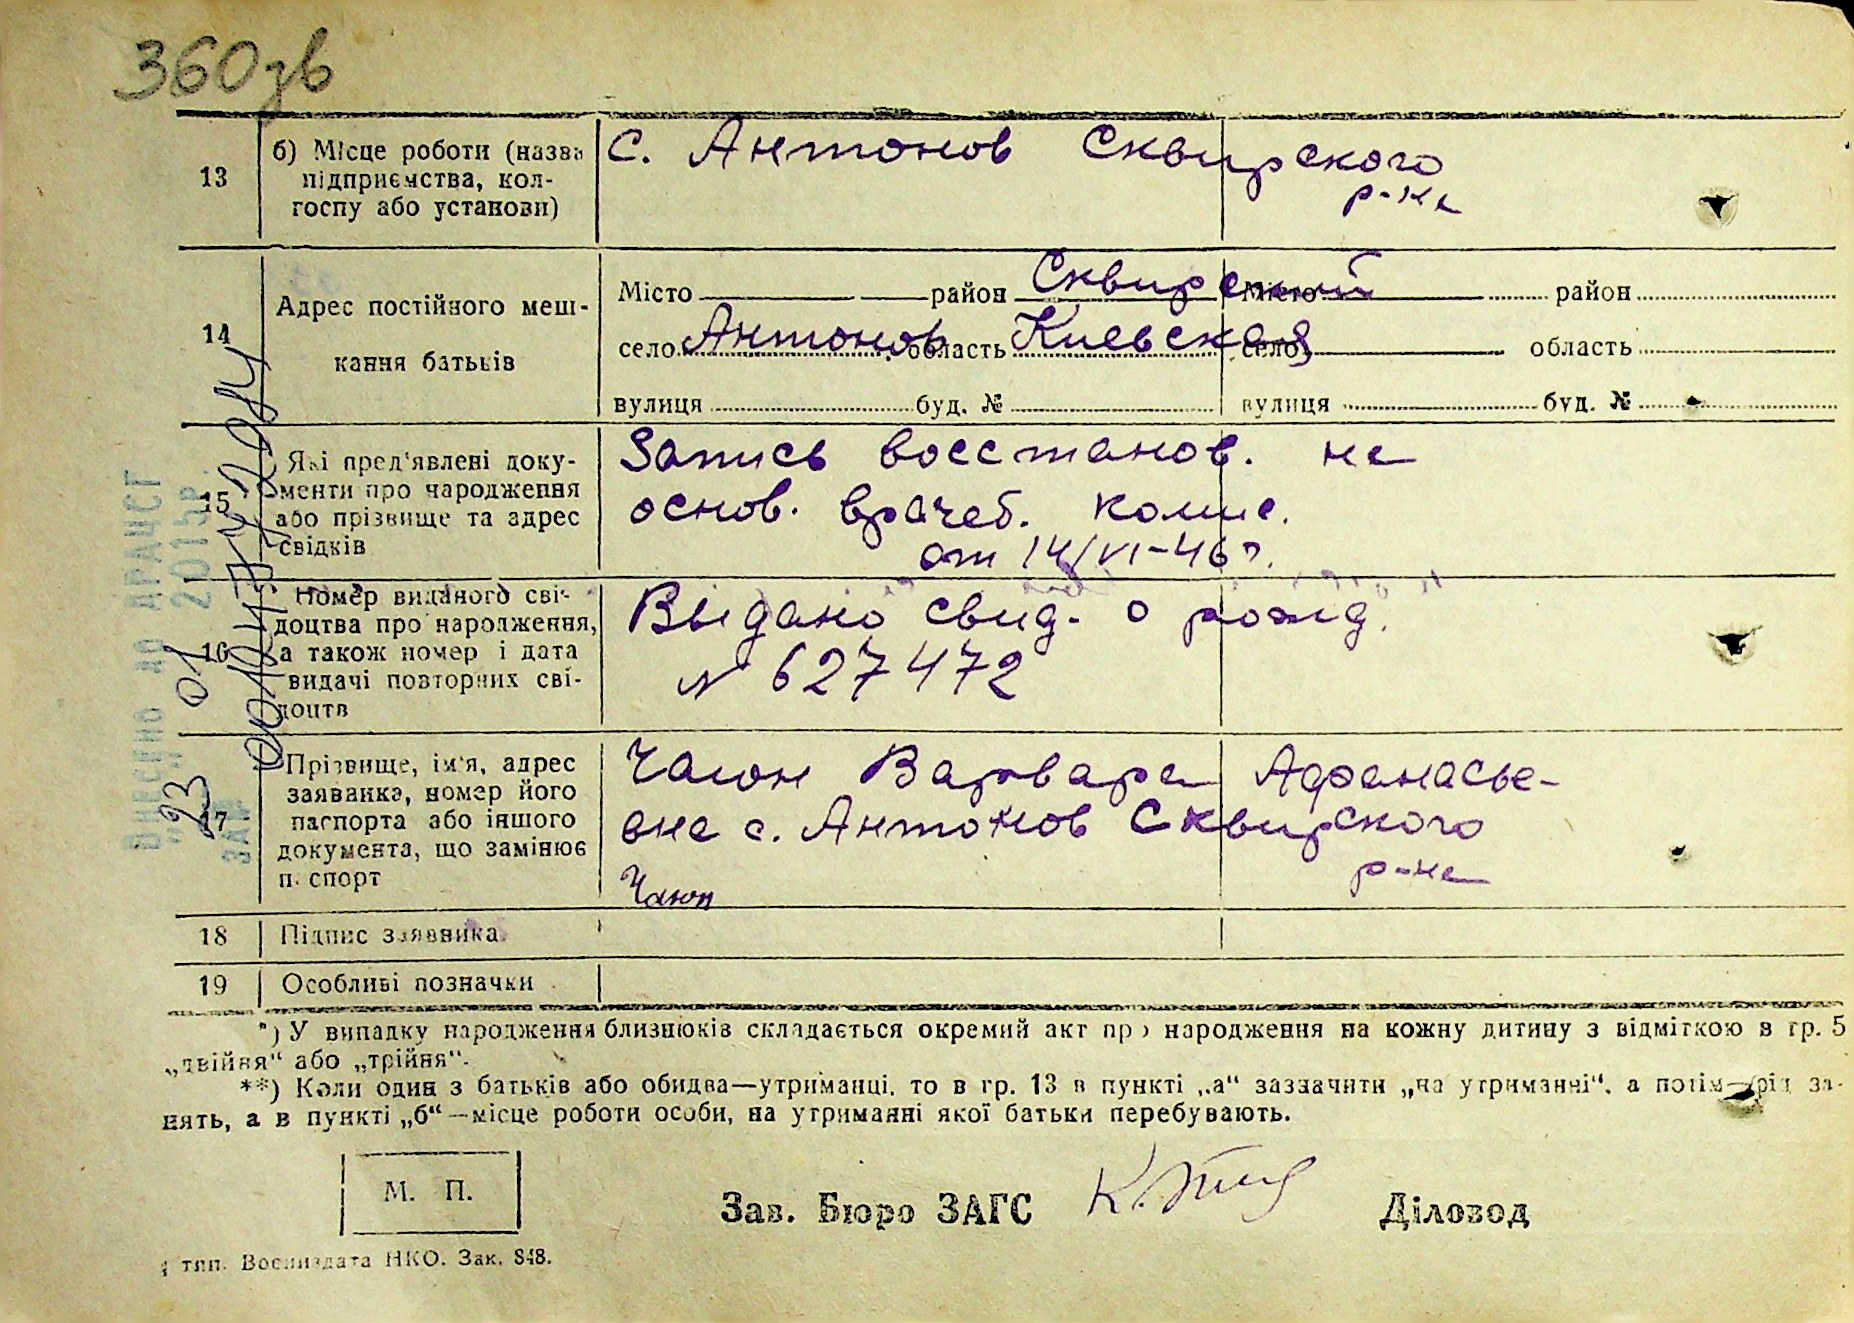 360 зв
13
б) Місце роботи (назва
підприємства, кол-
госпу або установи)
с. Антонов Сквирского
р-на
14
Адрес постійного меш-
кання батьків
Місто район Сквирский Місто район
село Антонов область Киевская село область
вулиця буд. № вулиця буд. №
15
Які пред'явлені доку-
менти про народження
або прізвище та адрес
свідків
Запись восстанов. на
основ. врачеб. комис.
от 14/VI-46 г.
16
Номер виданого сві-
доцтва про народження,
а також номер і дата
видачі повторних сві-
доцтв
Выдано свид. о рожд.
N 627472
17
Прізвище, ім'я, адрес
заявника, номер його
паспорта або іншого
документа, що замінює
паспорт
Чаюн Варвара Афанасье-
вна с. Антонов Сквирского
р-на
Чаюн
18 Підпис заявника
19 Особливі позначки
ВНЕСЕНО ДО ДРАЦСГ
2015р.
23 01
*) У випадку народження близнюків складається окремий акт про народження на кожну дитину з відміткою в гр. 5
„двійня“ або „трійня“.
**) Коли один з батьків або обидва—утриманці, то в гр. 13 в пункті „а“ зазначити „на утриманні“, а потім—рід за-
нять, а в пункті „б“—місце роботи особи, на утриманні якої батьки перебувають.
М. П.
Зав. Бюро ЗАГС
Діловод
тип. Воениздата НКО. Зак. 848.